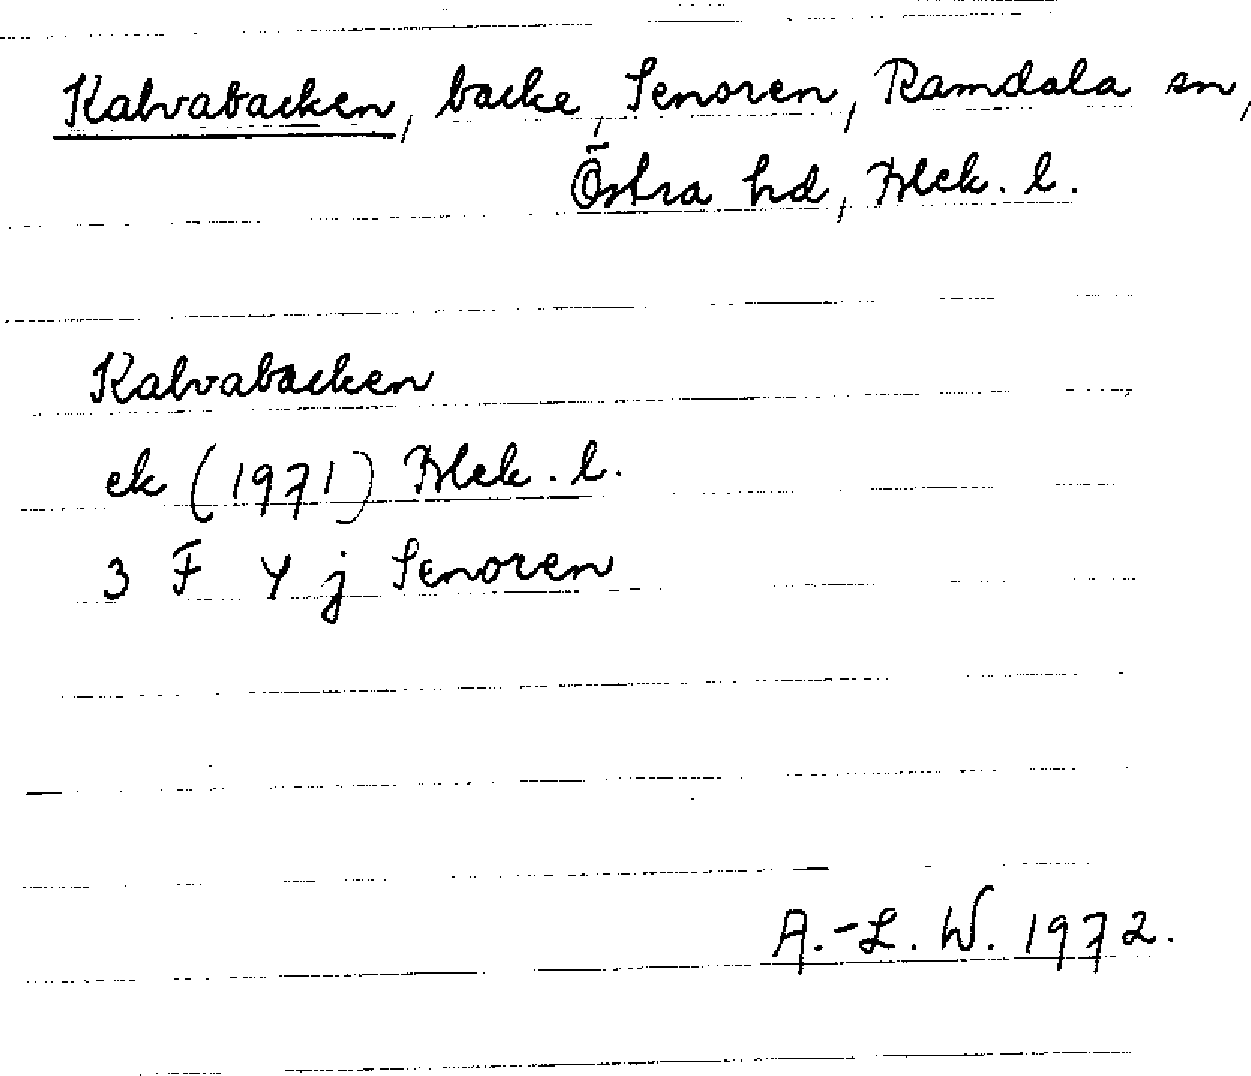 Kalvabacken, backe, Senoren, Ramdala sn,
Östra hd, Blek. l.
Kalvabacken
ek (1971) Blek. l.
3 F Y j Senoren
A.-L. W. 1972.